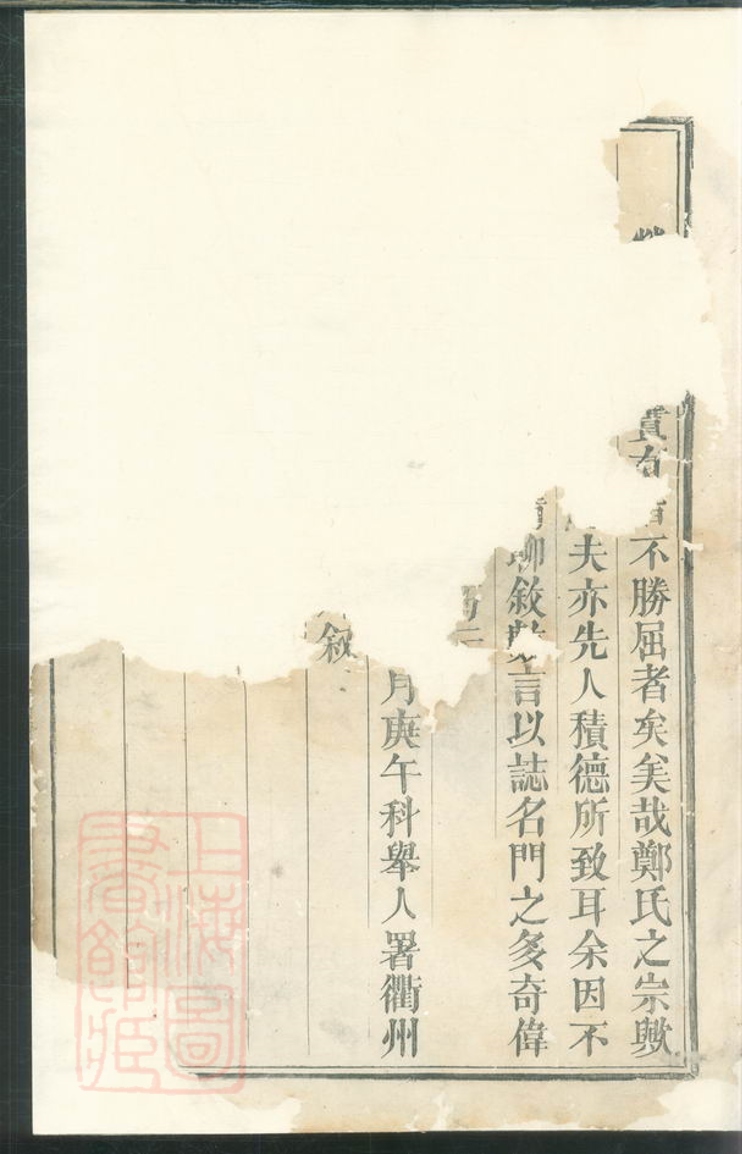 不勝屈者矣羙哉鄭氏之宗歟
夫亦先人積德所致耳余因不
聊敘數言以誌名門之多奇偉
月庚午科舉人署衢州
敘
上海圖
書館藏